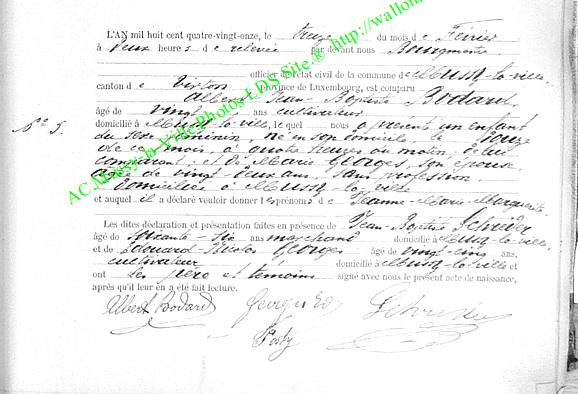 L'AN mil huit cent quatre-vingt-onze, le treize du mois de Février
à deux heures de relevée par devant nous Bourgmestre
officier de l'état civil de la commune de Mussy-la-ville,
canton de Virton province de Luxembourg, est comparu
Albert Jean-Baptiste Bodard,
âgé de vingt ans cultivateur
domicilié à Mussy-la-ville, lequel nous a présenté un enfant
du sexe féminin, né en son domicile, le douze
de ce mois, à quatre heures du matin, de lui
comparant, et de Marie Georges, son épouse
âgée de vingt-deux ans, sans profession,
domiciliés à Mussy-la-ville
et auquel il a déclaré vouloir donner les prénoms de Jeanne-Marie-Marguerite.
Les dites déclaration et présentation faites en présence de Jean-Baptiste Schreder
âgé de soixante-six ans marchand domicilié à Mussy-la-ville,
et de Edouard-Nicolas Georges âgé de vingt-cinq ans,
cultivateur domicilié à Mussy-la-ville et
ont les père et témoins signé avec nous le présent acte de naissance,
après qu'il leur en a été fait lecture.
N° 5.
Albert Bodard Georges Ed Schreder
AC Mussy-la-Ville Photos LDS Site ® http://wallon